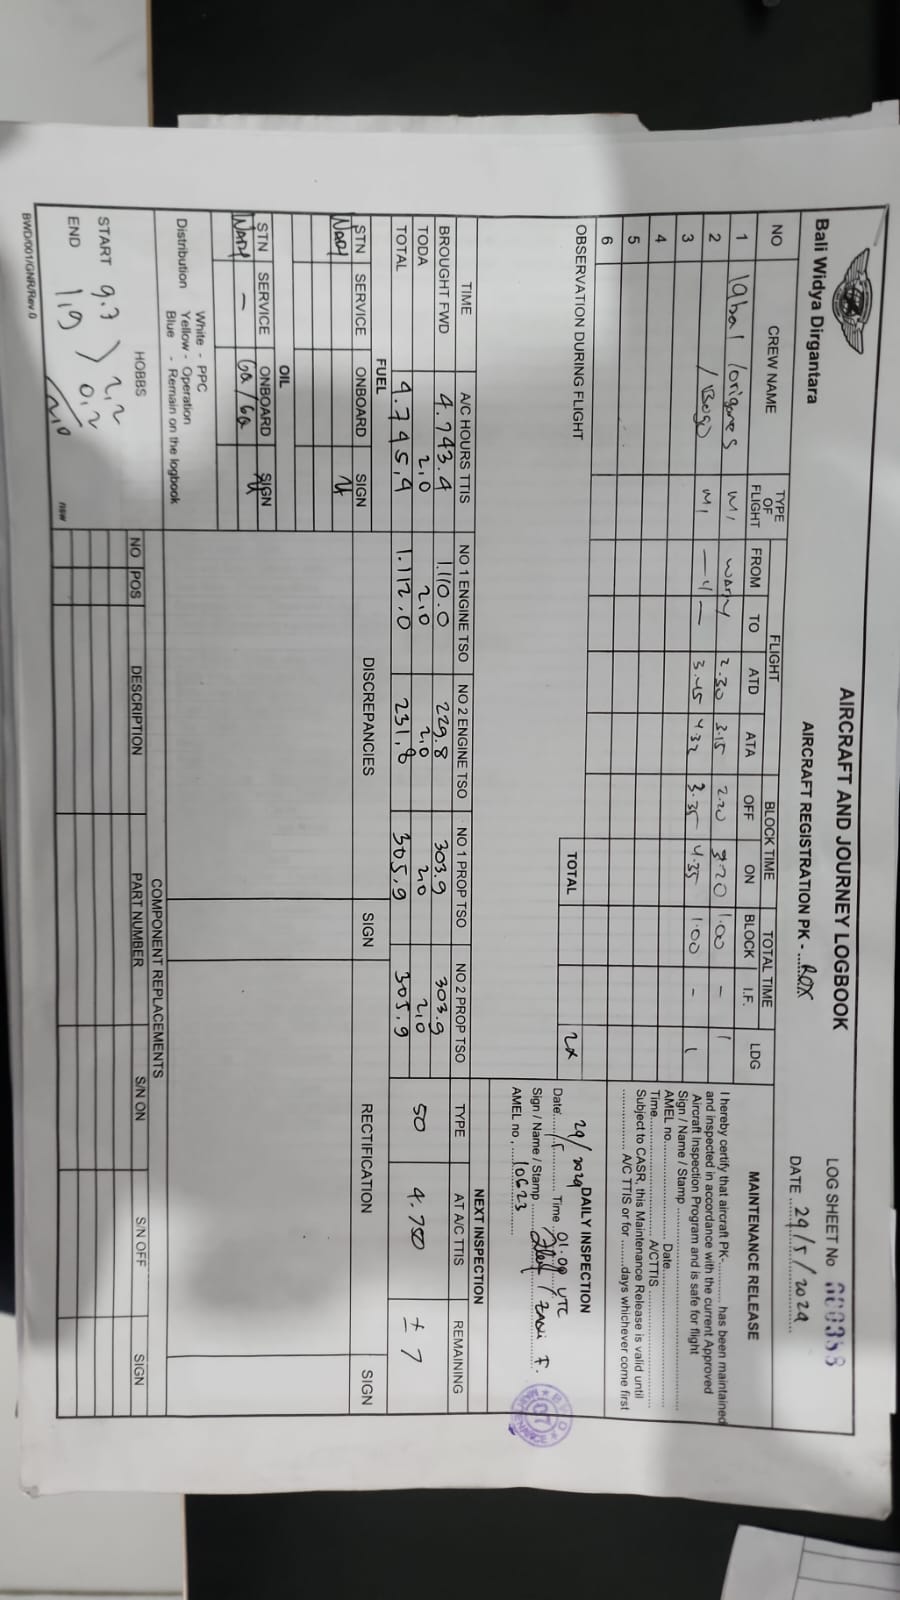 Bali Widya Dirgantara
AIRCRAFT AND JOURNEY LOGBOOK
AIRCRAFT REGISTRATION PK - ROX
LOG SHEET No 000388
DATE 29/5/2024
NO CREW NAME TYPE OF FLIGHT FLIGHT BLOCK TIME TOTAL TIME LDG
FROM TO ATD ATA OFF ON BLOCK I.F.
1 Iqbal / M1 WADY 2.30 3.15 2.20 3.20 1.00 - 1
2 / Bogo M1 — 4 — 3.45 4.32 3.35 4.35 1.00 - 1
3
4
5
6
OBSERVATION DURING FLIGHT
TOTAL 2x
MAINTENANCE RELEASE
I hereby certify that aircraft PK-.......... has been maintained
and inspected in accordance with the current Approved
Aircraft Inspection Program and is safe for flight
Sign / Name / Stamp
AMEL no. Date
Time A/CTTIS
Subject to CASR, this Maintenance Release is valid until
A/C TTIS or for ........days whichever come first
DAILY INSPECTION
Date 29/5/2024 Time 01.00 UTC
Sign / Name / Stamp
AMEL no. 10623
TIME A/C HOURS TTIS NO 1 ENGINE TSO NO 2 ENGINE TSO NO 1 PROP TSO NO 2 PROP TSO
BROUGHT FWD 4.743.4 1.110.0 229.8 303.9 303.9
TODA 2,0 2,0 2,0 2,0 2,0
TOTAL 4.745,4 1.112,0 231,8 305,9 305,9
NEXT INSPECTION
TYPE AT A/C TTIS REMAINING
50 4.750 ± 7
FUEL
STN SERVICE ONBOARD SIGN
WADY
OIL
STN SERVICE ONBOARD SIGN
WADY — 6Q/6Q
DISCREPANCIES SIGN RECTIFICATION SIGN
Distribution White - PPC
Yellow - Operation
Blue - Remain on the logbook
HOBBS
START 9.7 2,2
END 1,9 0,2
2,0
nsw
COMPONENT REPLACEMENTS
NO POS DESCRIPTION PART NUMBER S/N ON S/N OFF SIGN
BWD/001/GNR/Rev.0